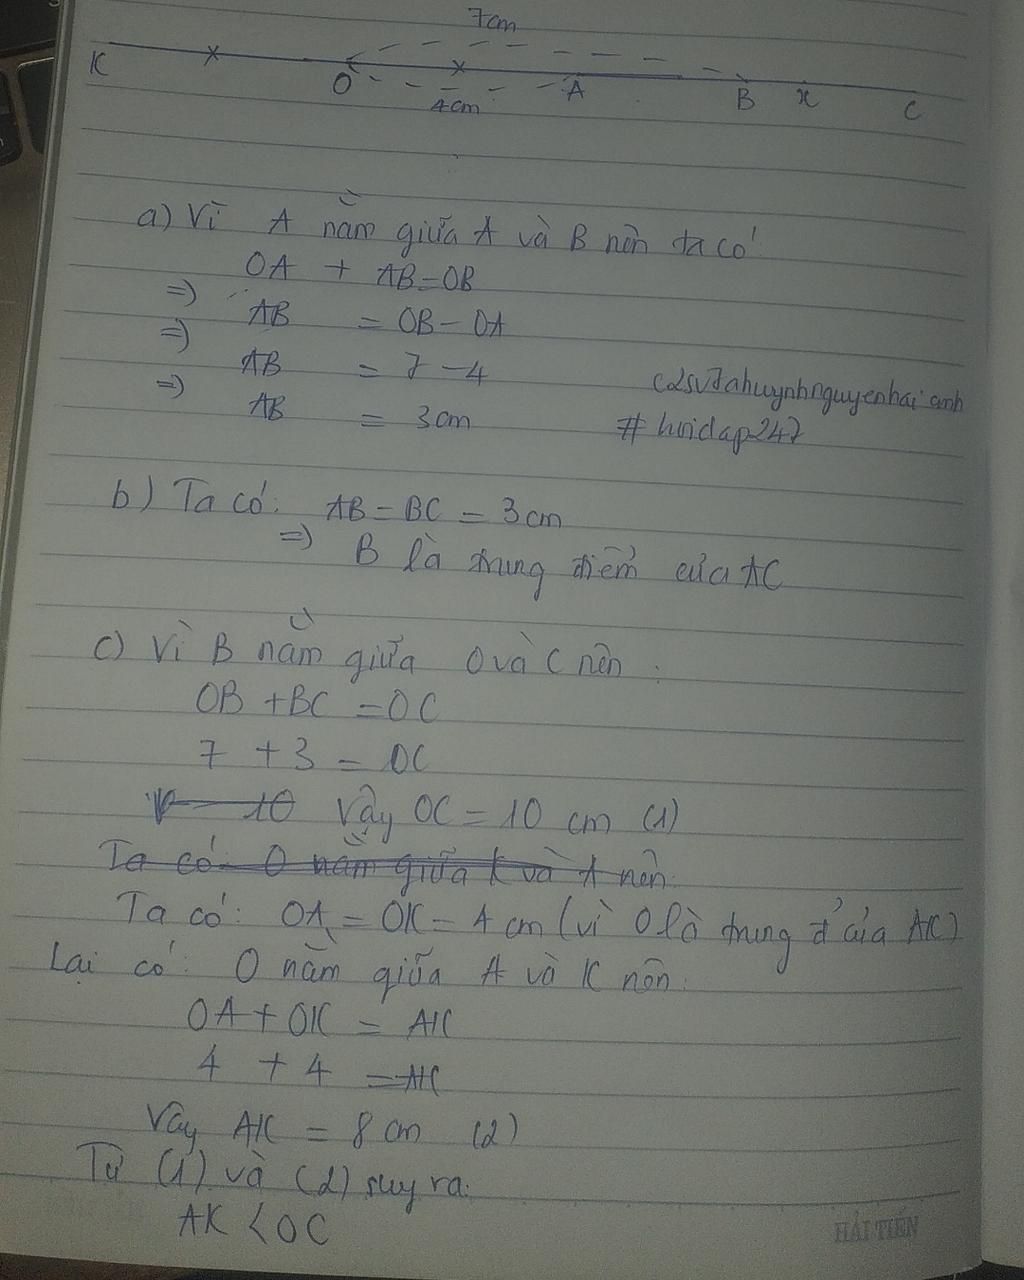 7cm
K O 4cm A B x C
a) Vì A nằm giữa A và B nên ta có
OA + AB = OB
=> AB = OB - OA
=> AB = 7 - 4
=> AB = 3cm
c2sv7ahuynhnguyenhaianh
# hoidap247
b) Ta có: AB = BC = 3cm
=> B là trung điểm của AC
c) Vì B nằm giữa O và C nên:
OB + BC = OC
7 + 3 = OC
10 Vậy OC = 10 cm (1)
Ta có O nằm giữa K và A nên:
Ta có: OA = OK = 4 cm (vì O là trung đ' của AK)
Lại có: O nằm giữa A và K nên:
OA + OK = AK
4 + 4 = AK
Vậy AK = 8 cm (2)
Từ (1) và (2) suy ra:
AK < OC
HẢI TIẾN